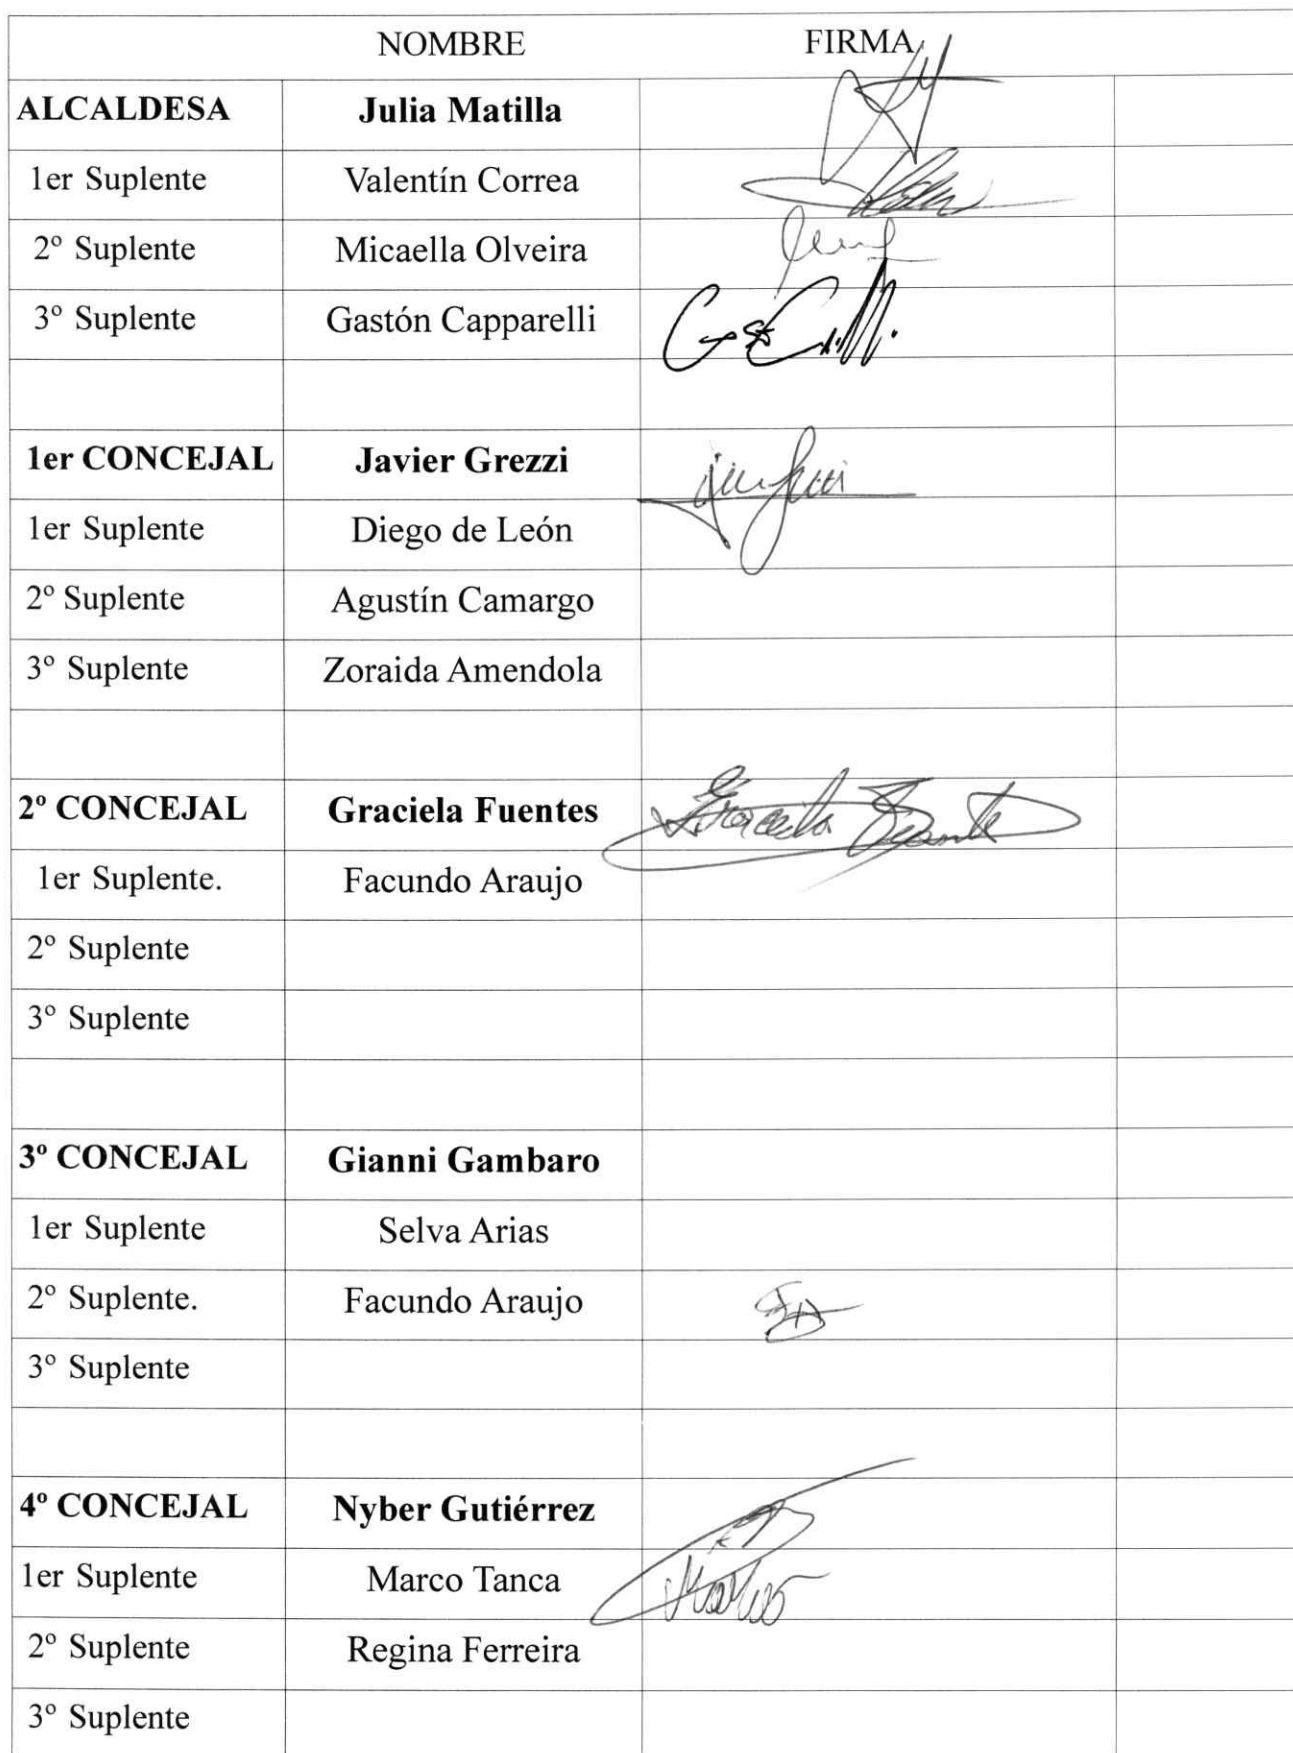 NOMBRE FIRMA
ALCALDESA Julia Matilla
1er Suplente Valentín Correa
2º Suplente Micaella Olveira
3º Suplente Gastón Capparelli
1er CONCEJAL Javier Grezzi
1er Suplente Diego de León
2º Suplente Agustín Camargo
3º Suplente Zoraida Amendola
2º CONCEJAL Graciela Fuentes Graciela
1er Suplente. Facundo Araujo
2º Suplente
3º Suplente
3º CONCEJAL Gianni Gambaro
1er Suplente Selva Arias
2º Suplente. Facundo Araujo
3º Suplente
4º CONCEJAL Nyber Gutiérrez
1er Suplente Marco Tanca
2º Suplente Regina Ferreira
3º Suplente